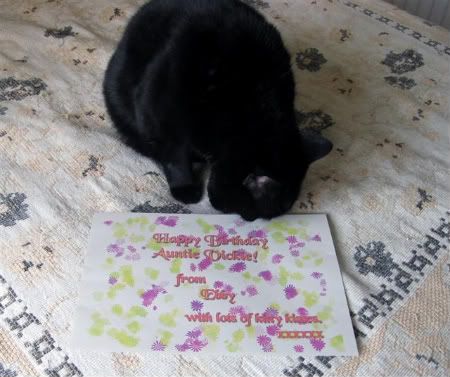 Happy Birthday
Auntie Dickie!
from
Dixy
with lots of kitty kisses.
xxxxxx